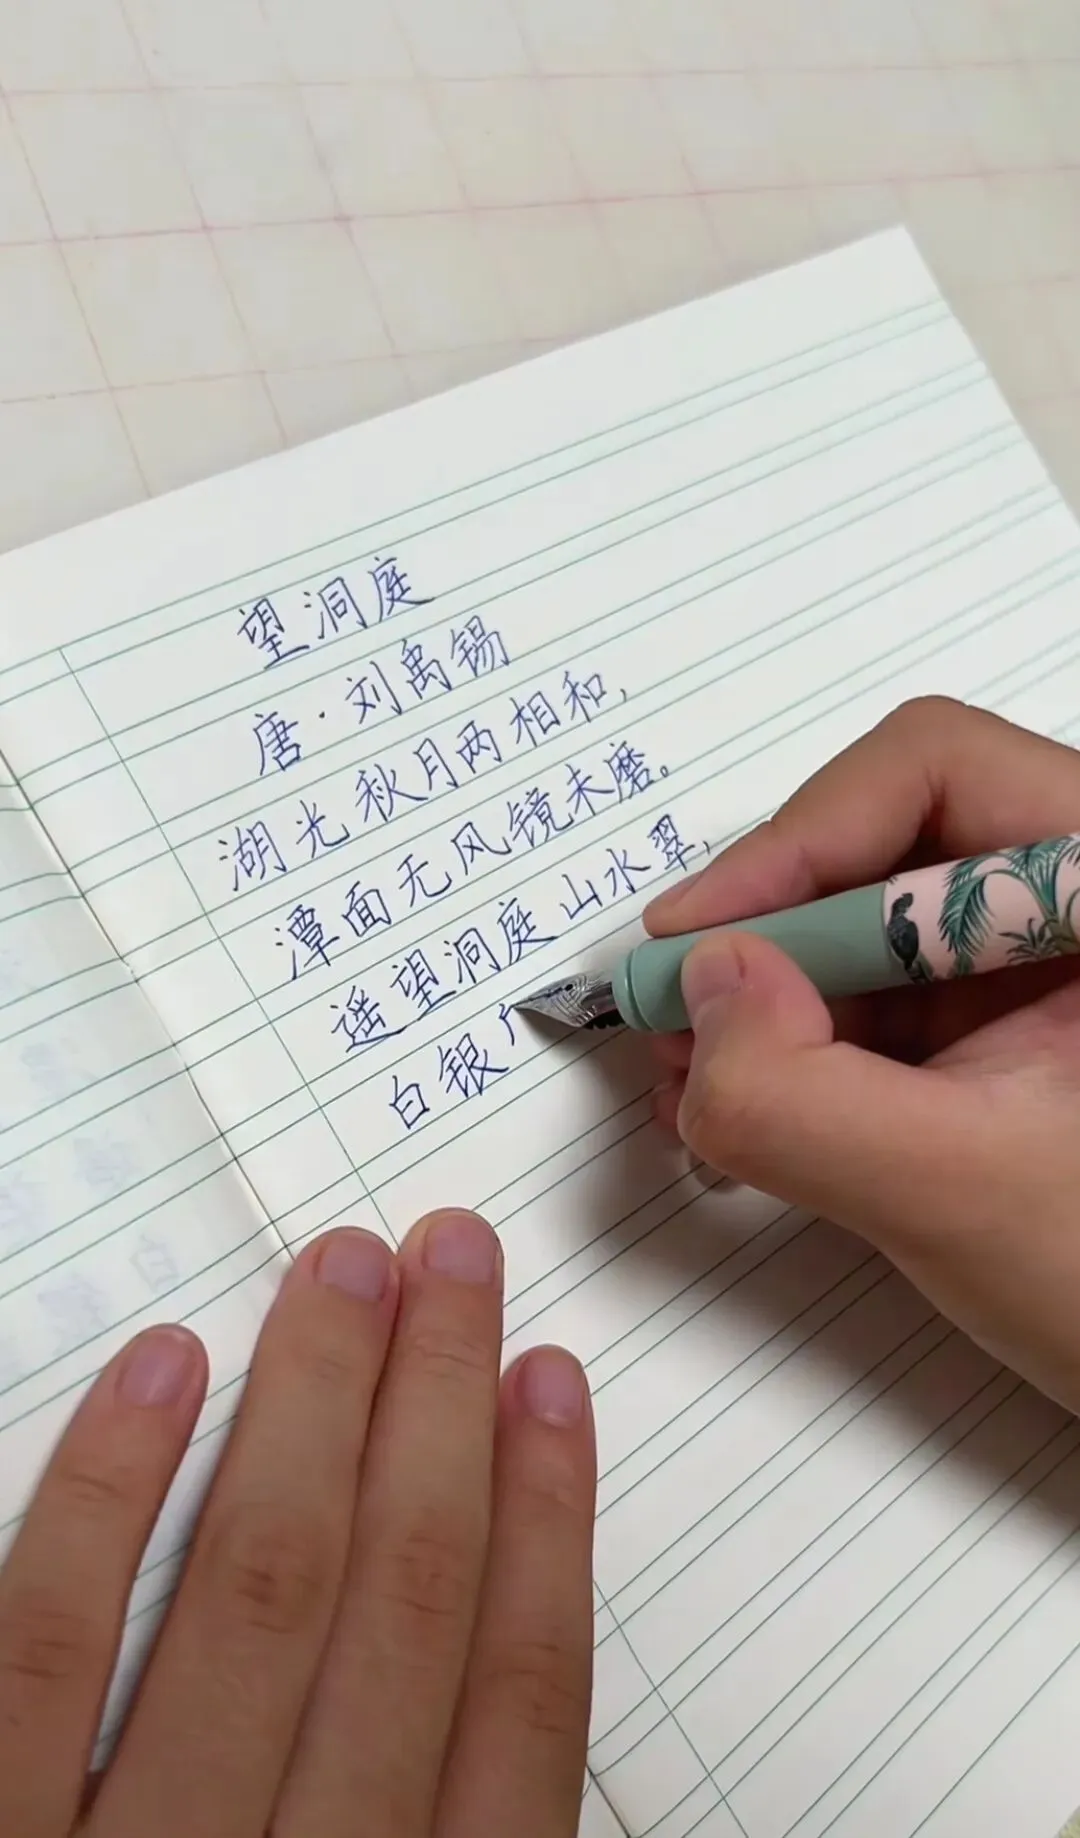 望洞庭
唐·刘禹锡
湖光秋月两相和,
潭面无风镜未磨。
遥望洞庭山水翠,
白银